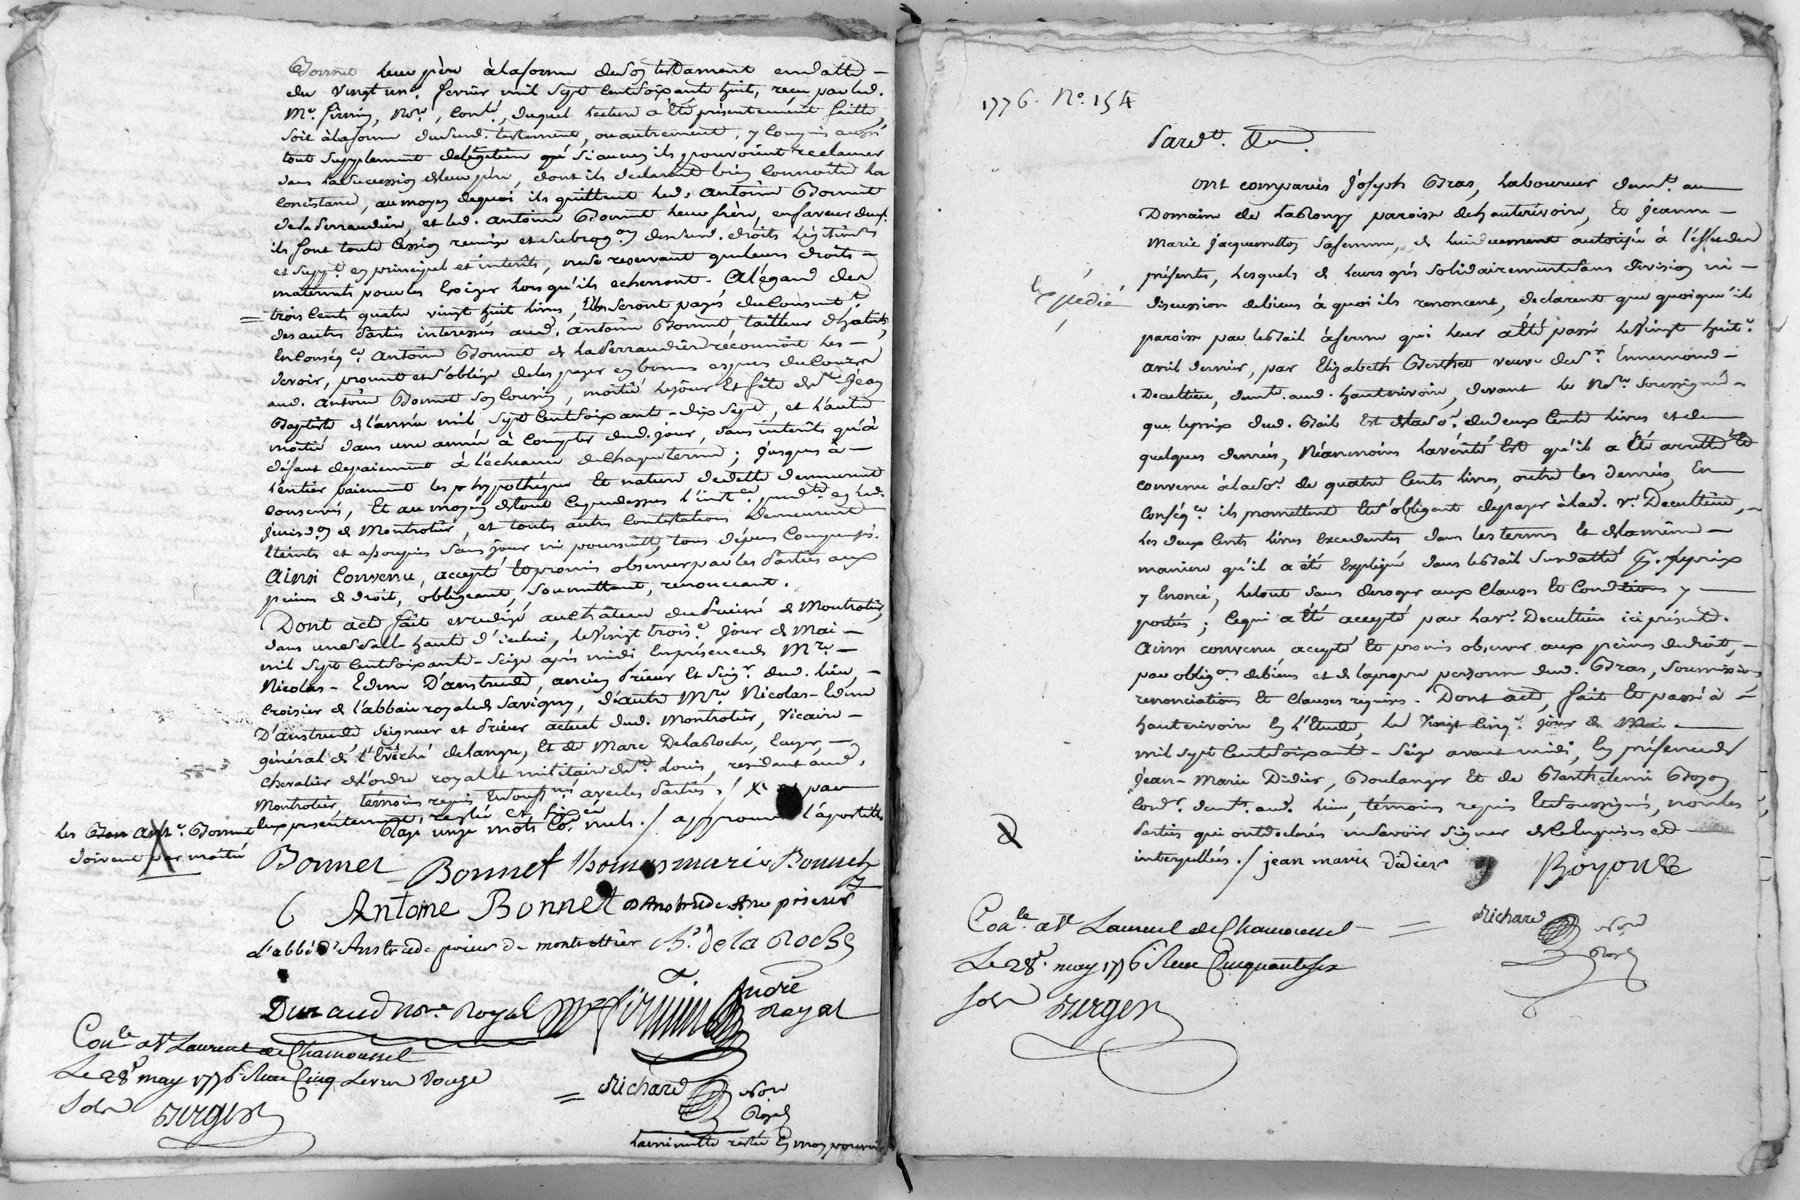 Bonnet leur père à la forme de son testament en datte
du vingt un.e fevrier mil sept cent soixante huit, reçu par led.
Me. firmin, No.re, Con.lé, duquel lecture a été présentement faitte,
soit à la forme dud. testament, ou autrement, y compris aussi
tout supplement de légitime qu'ils pouvoient reclamer
dans la succession de leur père, dont ils declarent bien connoitre la
consistance, au moyen de quoi ils quittent led. Antoine Bonnet
de la Perraudière, et led. Antoine Bonnet leur frère, en faveur duql.
ils font toute cession remise et subrog.on desd. droits légitimes
et supp.t en principal et intérêts, ne se reservant que leurs droits
maternels pour les exiger lorsqu'ils echerront. A l'égard des
trois cents quatre vingt huit livres, elles seront payés du consent.t
des autres parties interessés aud. Antoine Bonnet, tailleur d'habits,
En conség.ce Antoine Bonnet de la Perraudière reconnoit les
devoir, promet et s'oblige de les payer en bonnes especes du cours
aud. Antoine Bonnet son cousin, moitié le jour et fête de St. Jean
Baptiste de l'année mil sept cent soixante-dix sept, et l'autre
moitié dans une année à compter dud. jour, sans intérêts qu'à
défaut de paiement à l'écheance de chaque terme; jusques à
l'entier paiement les hypothéques et nature de dette demeurent
conservés, Et au moyen de tout ce que dessus l'inst.ce pend.te en lad.
Jurisd.on de Montrotier, et toutes autres contestations demeurent
éteints et assoupies sans jour ni poursuitte, tous dépens compensés.
Ainsi convenu, accepté et promis observer par les parties aux
peines de droit, obligeant, soumettant, renonceant.
Dont acte fait et redigé au château du Prieuré de Montrotier,
dans une salle haute d'icelui, le vingt trois.e jour de Mai
mil sept cent soixante-seize après midi en présence de M.re
Nicolas-Edme D'anstrude, ancien Prieur et Seig.r dud. lieu,
croisier de l'abbaie royale de Savigny, d'autre M.re Nicolas-Edme
D'anstrude Seigneur et Prieur actuel dud. Montrotier, Vicaire
général de l'Evêché de Langre, Et de Marc Delaroche, Ecuyer,
Chevalier de l'ordre royal et militaire de St. Louis, residant aud.
Montrotier, témoins requis et soussignés avec les parties. /
les présentement, reglée et fixée
Raye unze mots nuls. / approuvé l'apostille
les Ant.e Bonnet
doivent par moitié
Bonnet Bonnet thomas marie Bonnet
Antoine Bonnet D'Anstrude Anc prieur
L'abbé d'Anstrude prieur de montrottier ch.r de la Roche
Durand no.re Royal Firmin Royal
Con.lé a St Laurent de Chamousset
Le 28e may 1776 Reçu Cinq Livres Douze
Sols Durger
= Richard No.re
Royal
la minutte restée en mon pouvoir
1776. No. 154
Pard.t &c.
Expédié
ont comparus Joseph Bras, laboureur dem.t au
Domaine de la Ronzy paroisse de hauterivoire, Et Jeanne
Marie Jacquemetton sa femme, de lui duement autorisée à l'effet des
présentes, lesquels de leurs grés solidairement sans division ni
discussion de biens à quoi ils renoncent, declarent que quoiqu'il
paroisse par le bail à ferme qui leur a été passé le vingt huit.e
avril dernier, par Elizabeth Berthet veuve de Sr. Ennemond
Decultieu, dem.te aud. hauterivoire, devant le No.re soussigné
que le prix dud. Bail Est de la so.e de deux cents livres et de
quelques denrées, Néanmoins la vérité Est qu'il a été arrêtté Et
convenu à la so.e de quatre cents livres, outre les denrées, En
conség.ce ils promettent et s'obligent de payer à lad. v.e Decultieu,
les deux cents livres excedentes dans les termes et de la même
maniere qu'il a été expliqué dans le bail susdatté le prix
y énoncé, le tout sans deroger aux clauses Et conditions y
portés; ce qui a été accepté par lad v.e Decultieu ici présente.
Ainsi convenu accepté Et promis observer aux peines de droit,
par oblig.on de biens et de la propre personne dud. Bras, soumissions
renonciations Et clauses requises. Dont acte, fait Et passé à
hauterivoire En l'Etude, le vingt cinq.e jour de Mai
mil sept cent soixante-seize avant midi, En présence de
Jean-Marie Didier, Boulanger Et de Barthélemi Boyon
Cord.r dem.ts aud. lieu, témoins requis Et soussignés, non les
parties qui ont declarés ne savoir signer de ce enquises et
interpellées. / jean marie didier Boyon
Con.lé a St Laurent de Chamousset =
Le 28e. may 1776 Reçu Cinquante six
Sols Durger
Richard No.re
Royal